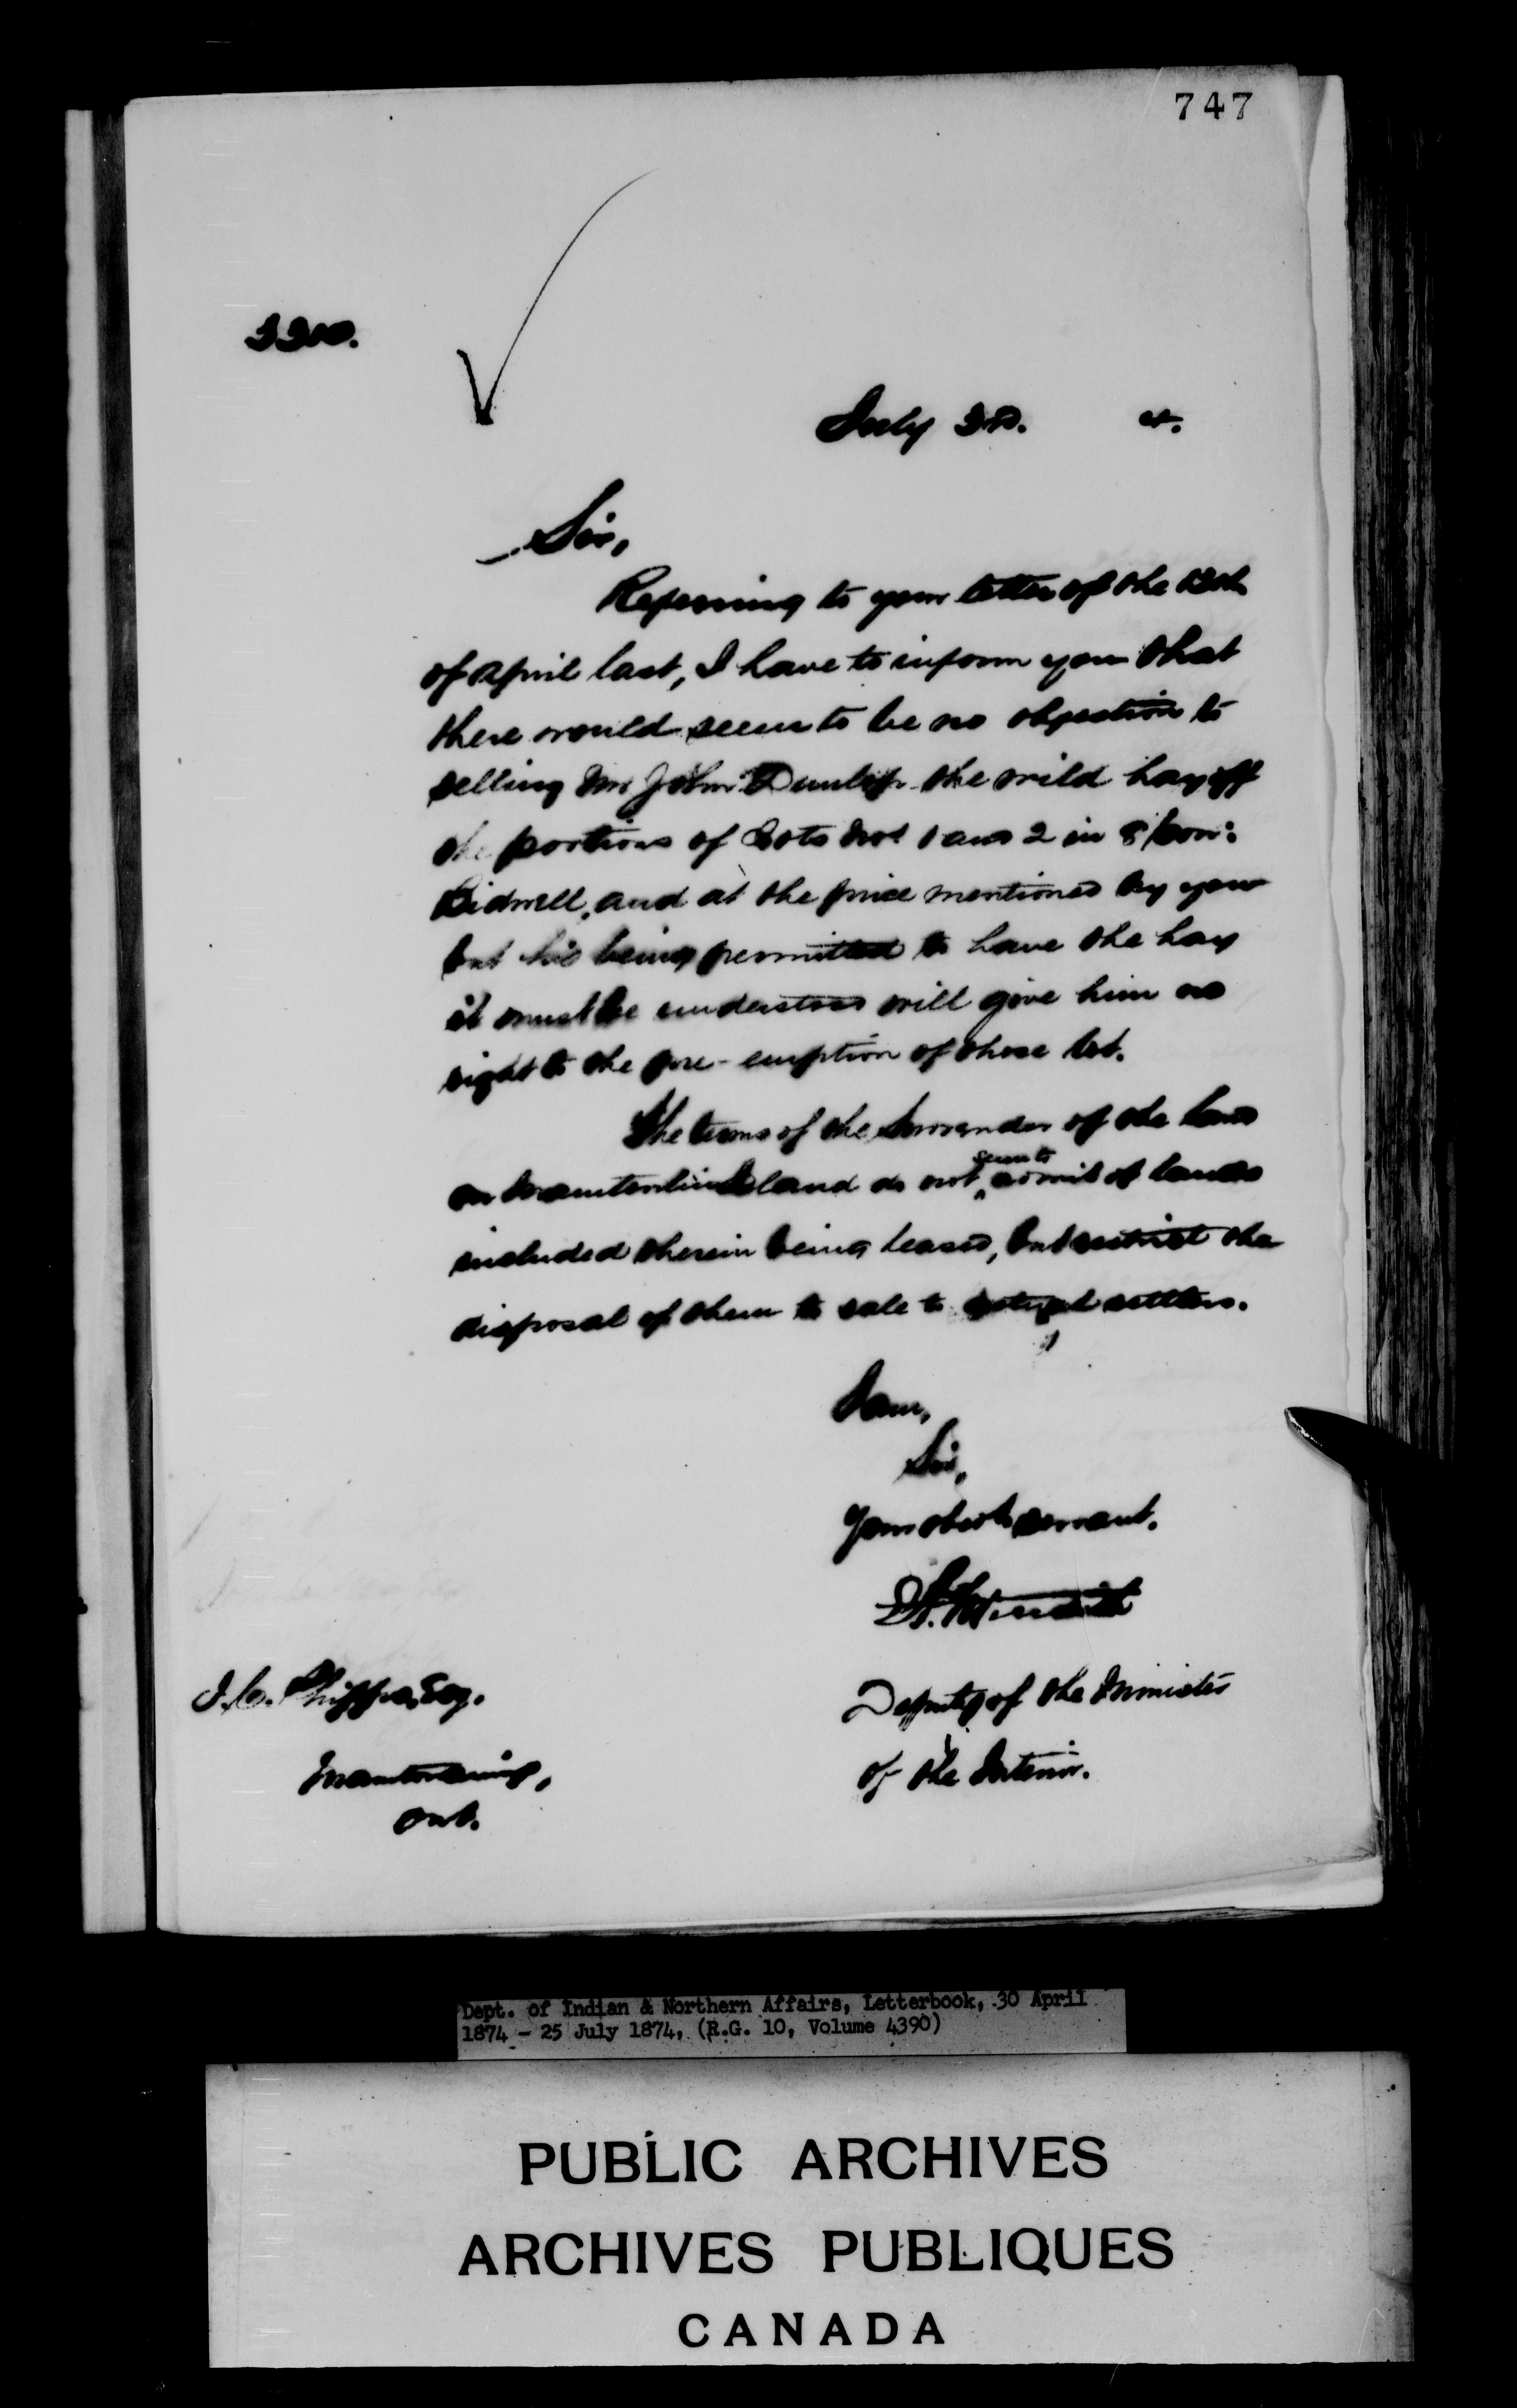 747
July
Sir,
Referring to your letter of the
of April last, I have to inform you that
there would seem to be no objection to
selling Mr John Dunlop the wild hay off
the portions of Lots Nos 1 and 2 in 8 Con:
Bidwell, and at the price mentioned by you
but his being permitted to have the hay
it must be understood will give him no
right to the pre-emption of those lot.
The terms of the Surrender of the land
on Manitoulin Island do not seem to admit of lands
included therein being leased, but restrict the
disposal of them to sale to actual settlers.
I am,
Sir,
Your obedt servant.
E.A. Meredith
J.C. Phipps, Esq.
Deputy of the Minister
Manitowaning,
of the Interior.
Ont.
Dept. of Indian & Northern Affairs, Letterbook, 30 April
1874 - 25 July 1874, (R.G. 10, Volume 4390)
PUBLIC ARCHIVES
ARCHIVES PUBLIQUES
CANADA